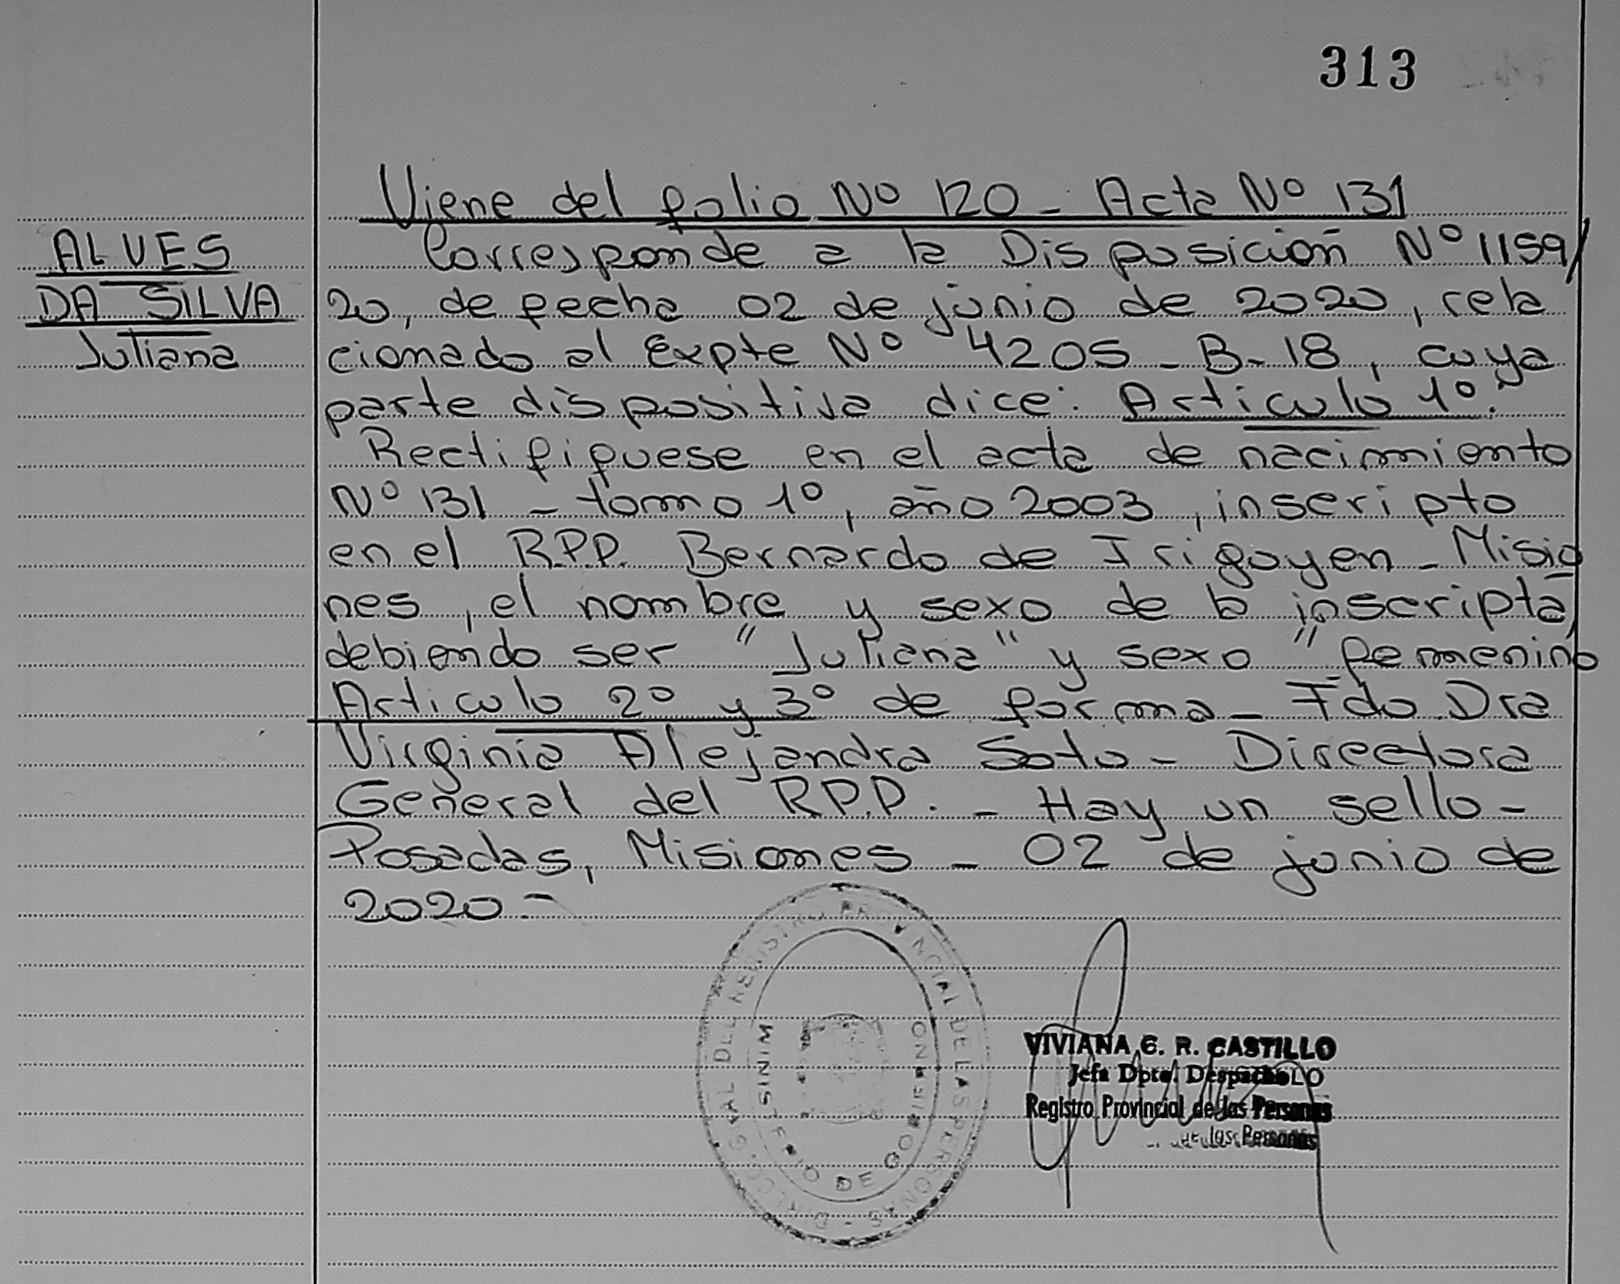 313
Viene del folio Nº 120 - Acta Nº 131
ALVES
DA SILVA
Juliana
Corresponde a la Disposición Nº 1159/
20, de fecha 02 de junio de 2020, rela
cionado al Expte Nº 4205 - B - 18, cuya
parte dispositiva dice: Articulo 1º:
Rectifiquese en el acta de nacimiento
Nº 131 - tomo 1º, año 2003, inscripto
en el R.P.P. Bernardo de Irigoyen - Misio
nes, el nombre y sexo de la inscripta,
debiendo ser "Juliana" y sexo "femenino
Articulo 2º y 3º de forma - Fdo Dra
Virginia Alejandra Soto - Directora
General del R.P.P. - Hay un sello -
Posadas, Misiones - 02 de junio de
2020 -
DIRECC. GRAL DEL REGISTRO PROVINCIAL DE LAS PERSONAS -
MINISTERIO DE GOBIERNO
VIVIANA C. R. CASTILLO
Jefa Dpto. Despacho
Registro Provincial de las Personas
de las Personas